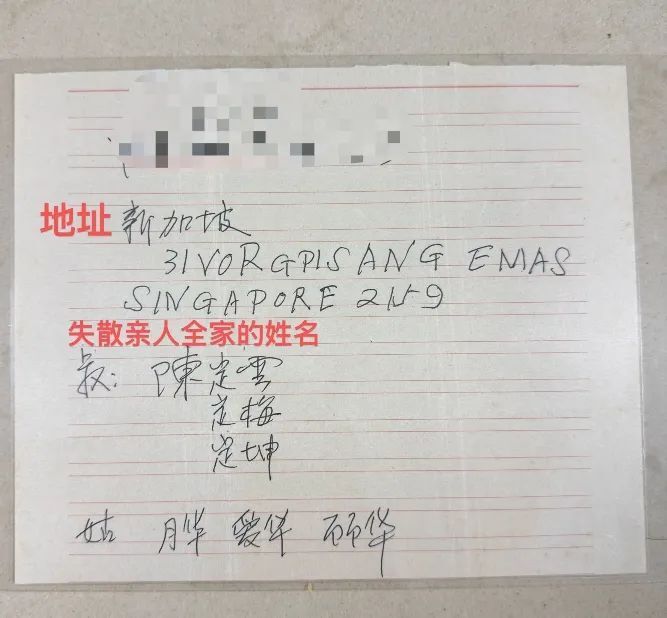 地址 新加坡
31VORGPISANG EMAS
SINGAPORE 2159
失散亲人全家的姓名
叔: 陳定雲
定梅
定坤
姑 月华 爱华 顾华